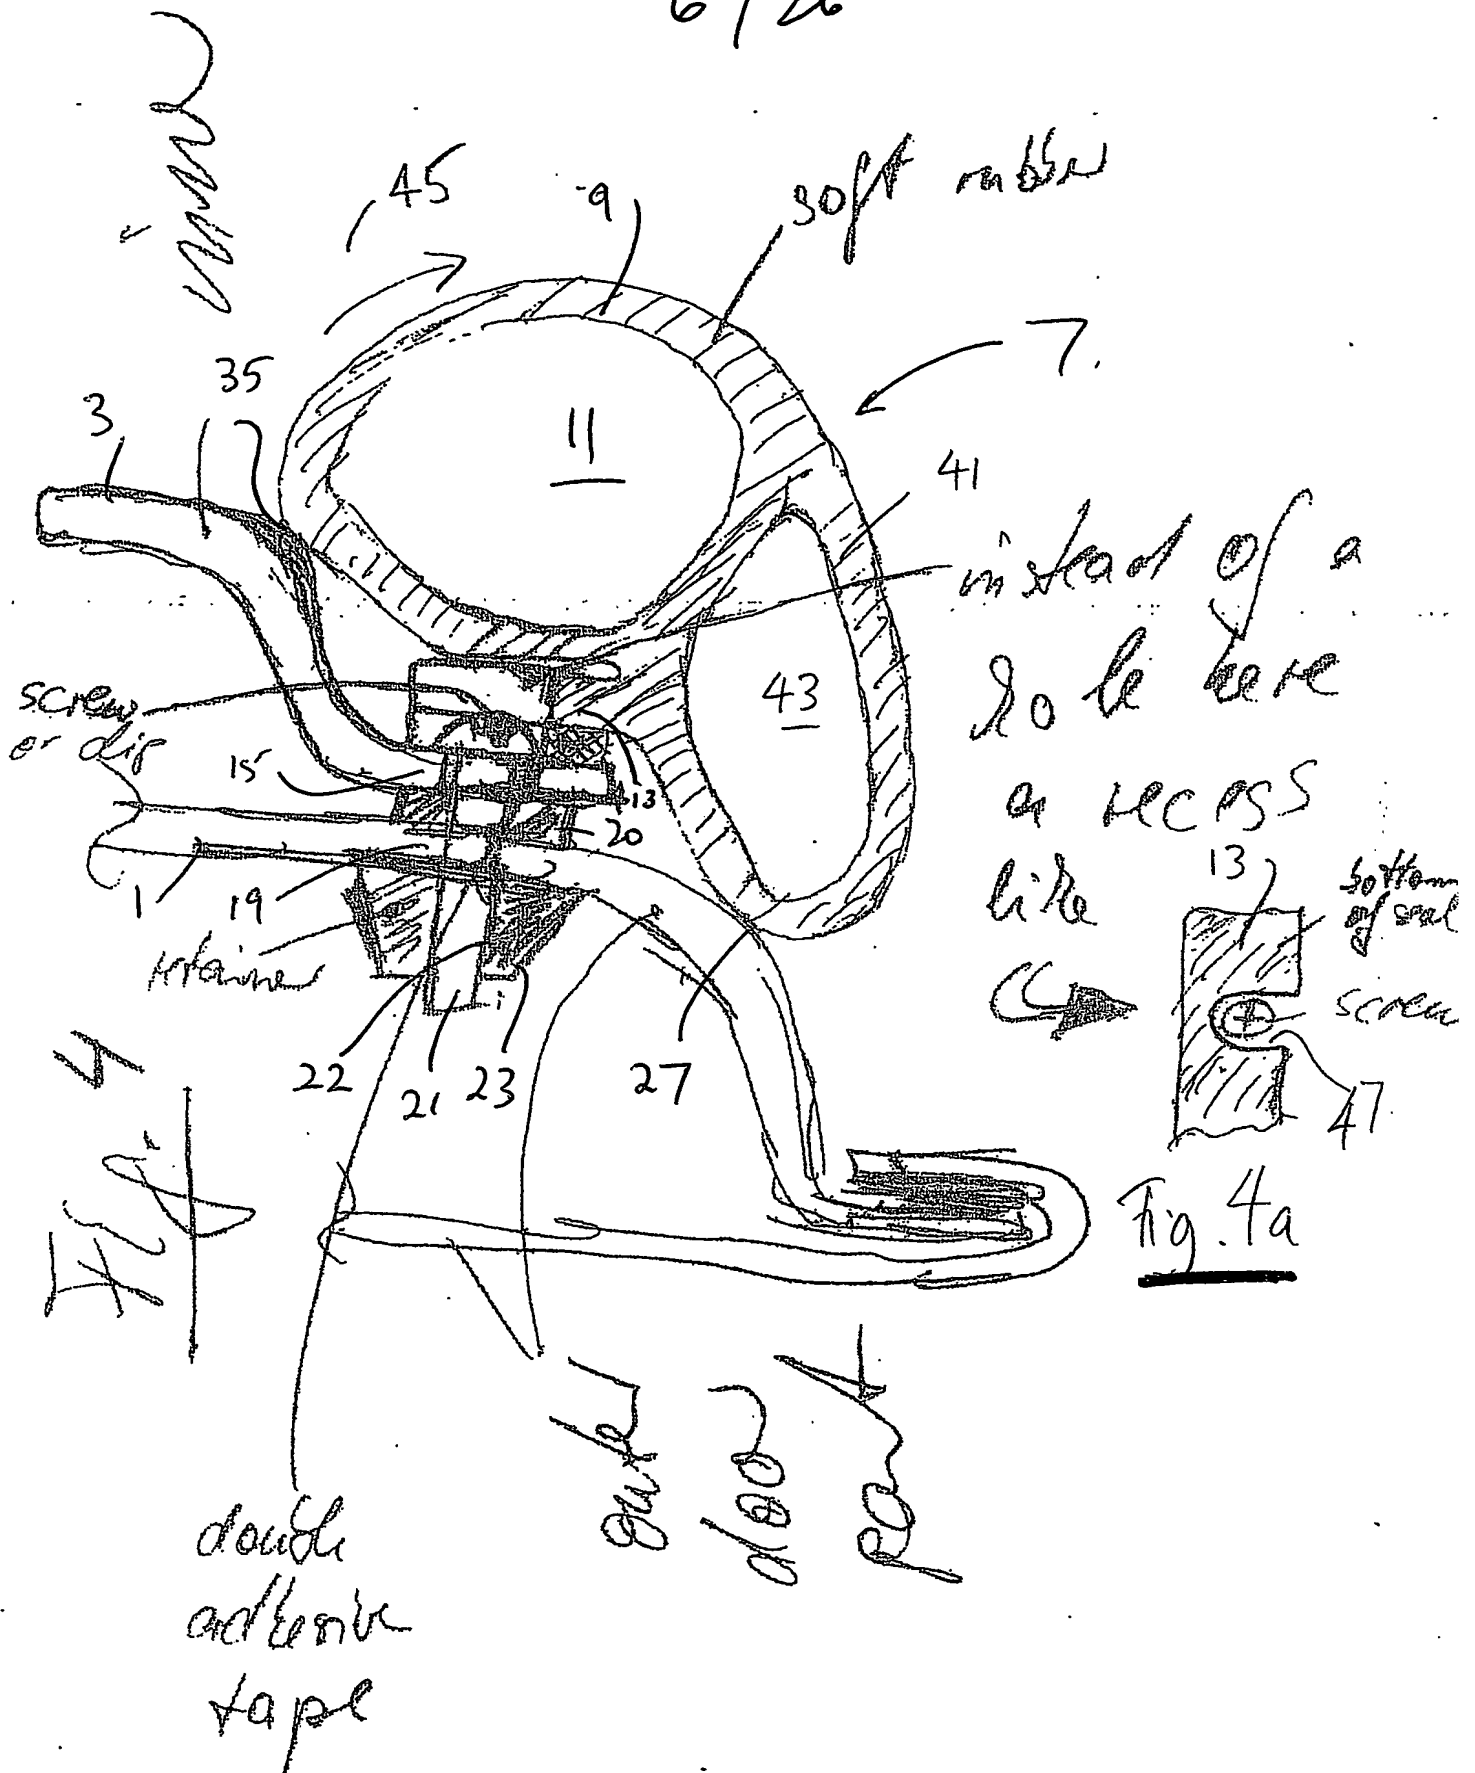 6/26
45
9
soft rubber
7.
35
3
11
41
instead of a
hole here
a recess
like
43
screw
or clip
15
13
20
1
19
retainer
22
21
23
27
13
bottom
of seal
screw
47
Fig. 4a
Fig. 4
double
adhesive
tape
door